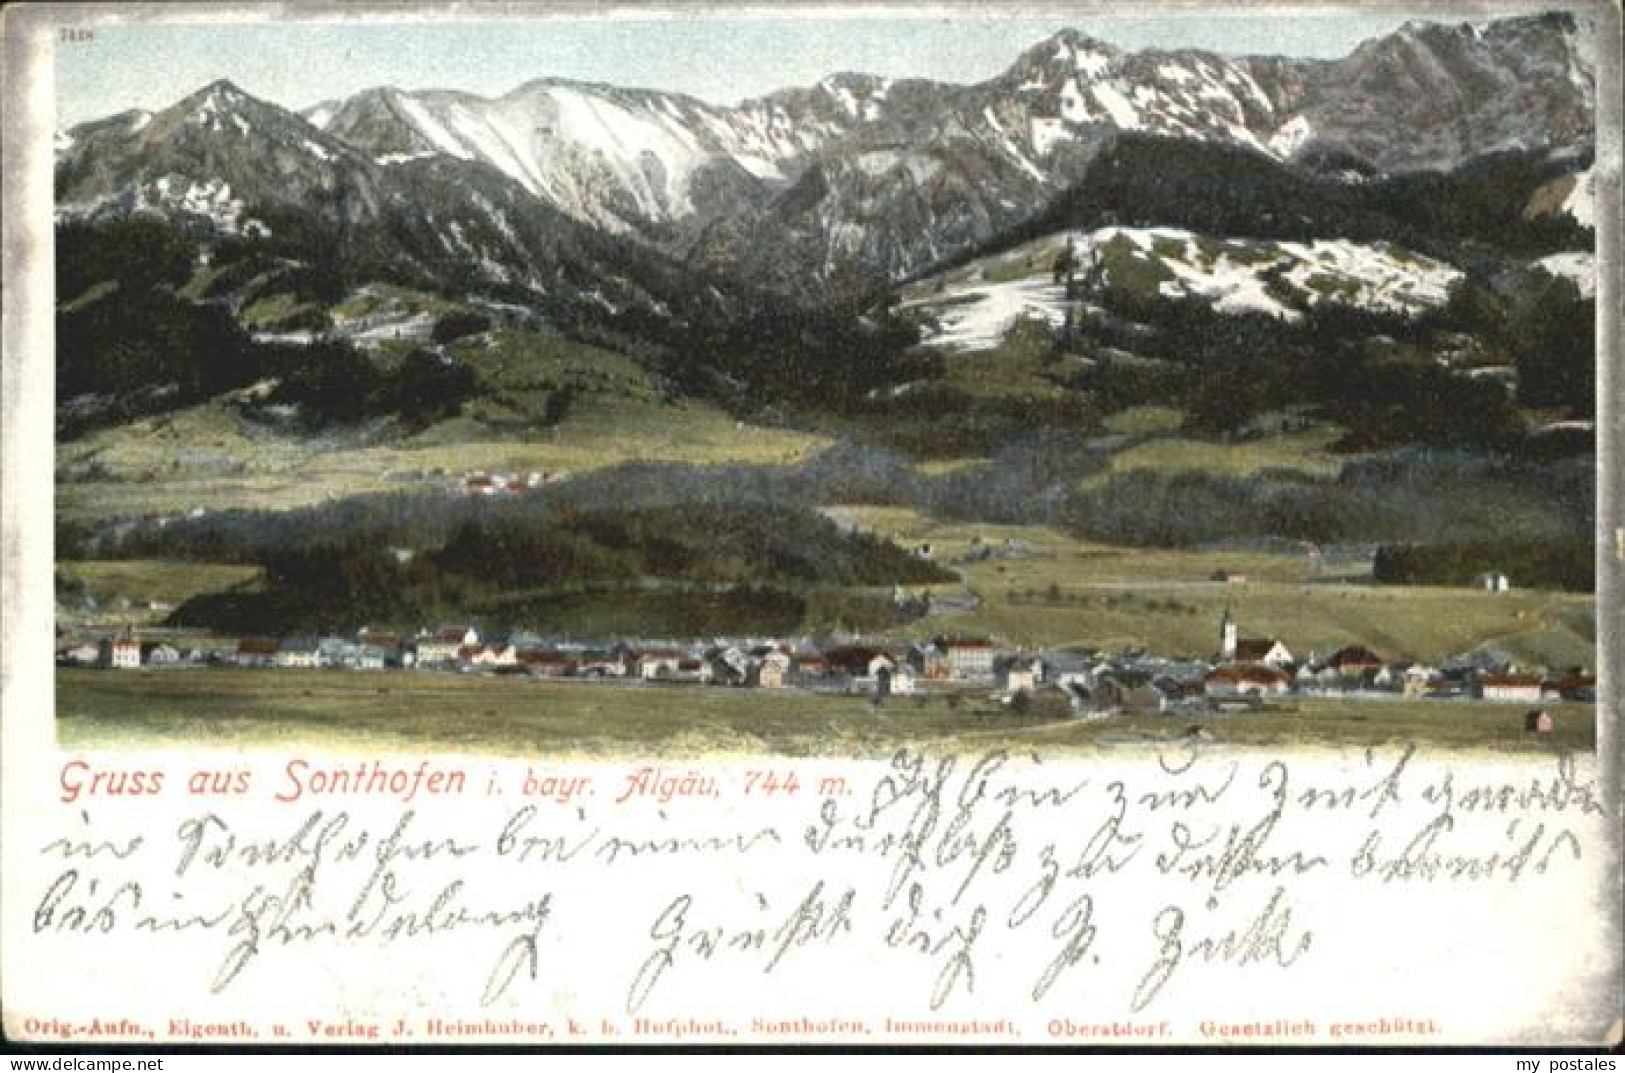 7118
Gruss aus Sonthofen i. bayr. Algäu, 744 m.
Ich bin zur Zeit gerade
in Sonthofen bei einem Durchlaß zu bereits
bis in Hindelang Grüßt dich
Orig.-Aufn., Eigenth. u. Verlag J. Heimhuber, k. b. Hofphot., Sonthofen, Immenstadt, Oberstdorf. Gesetzlich geschützt.
my postales